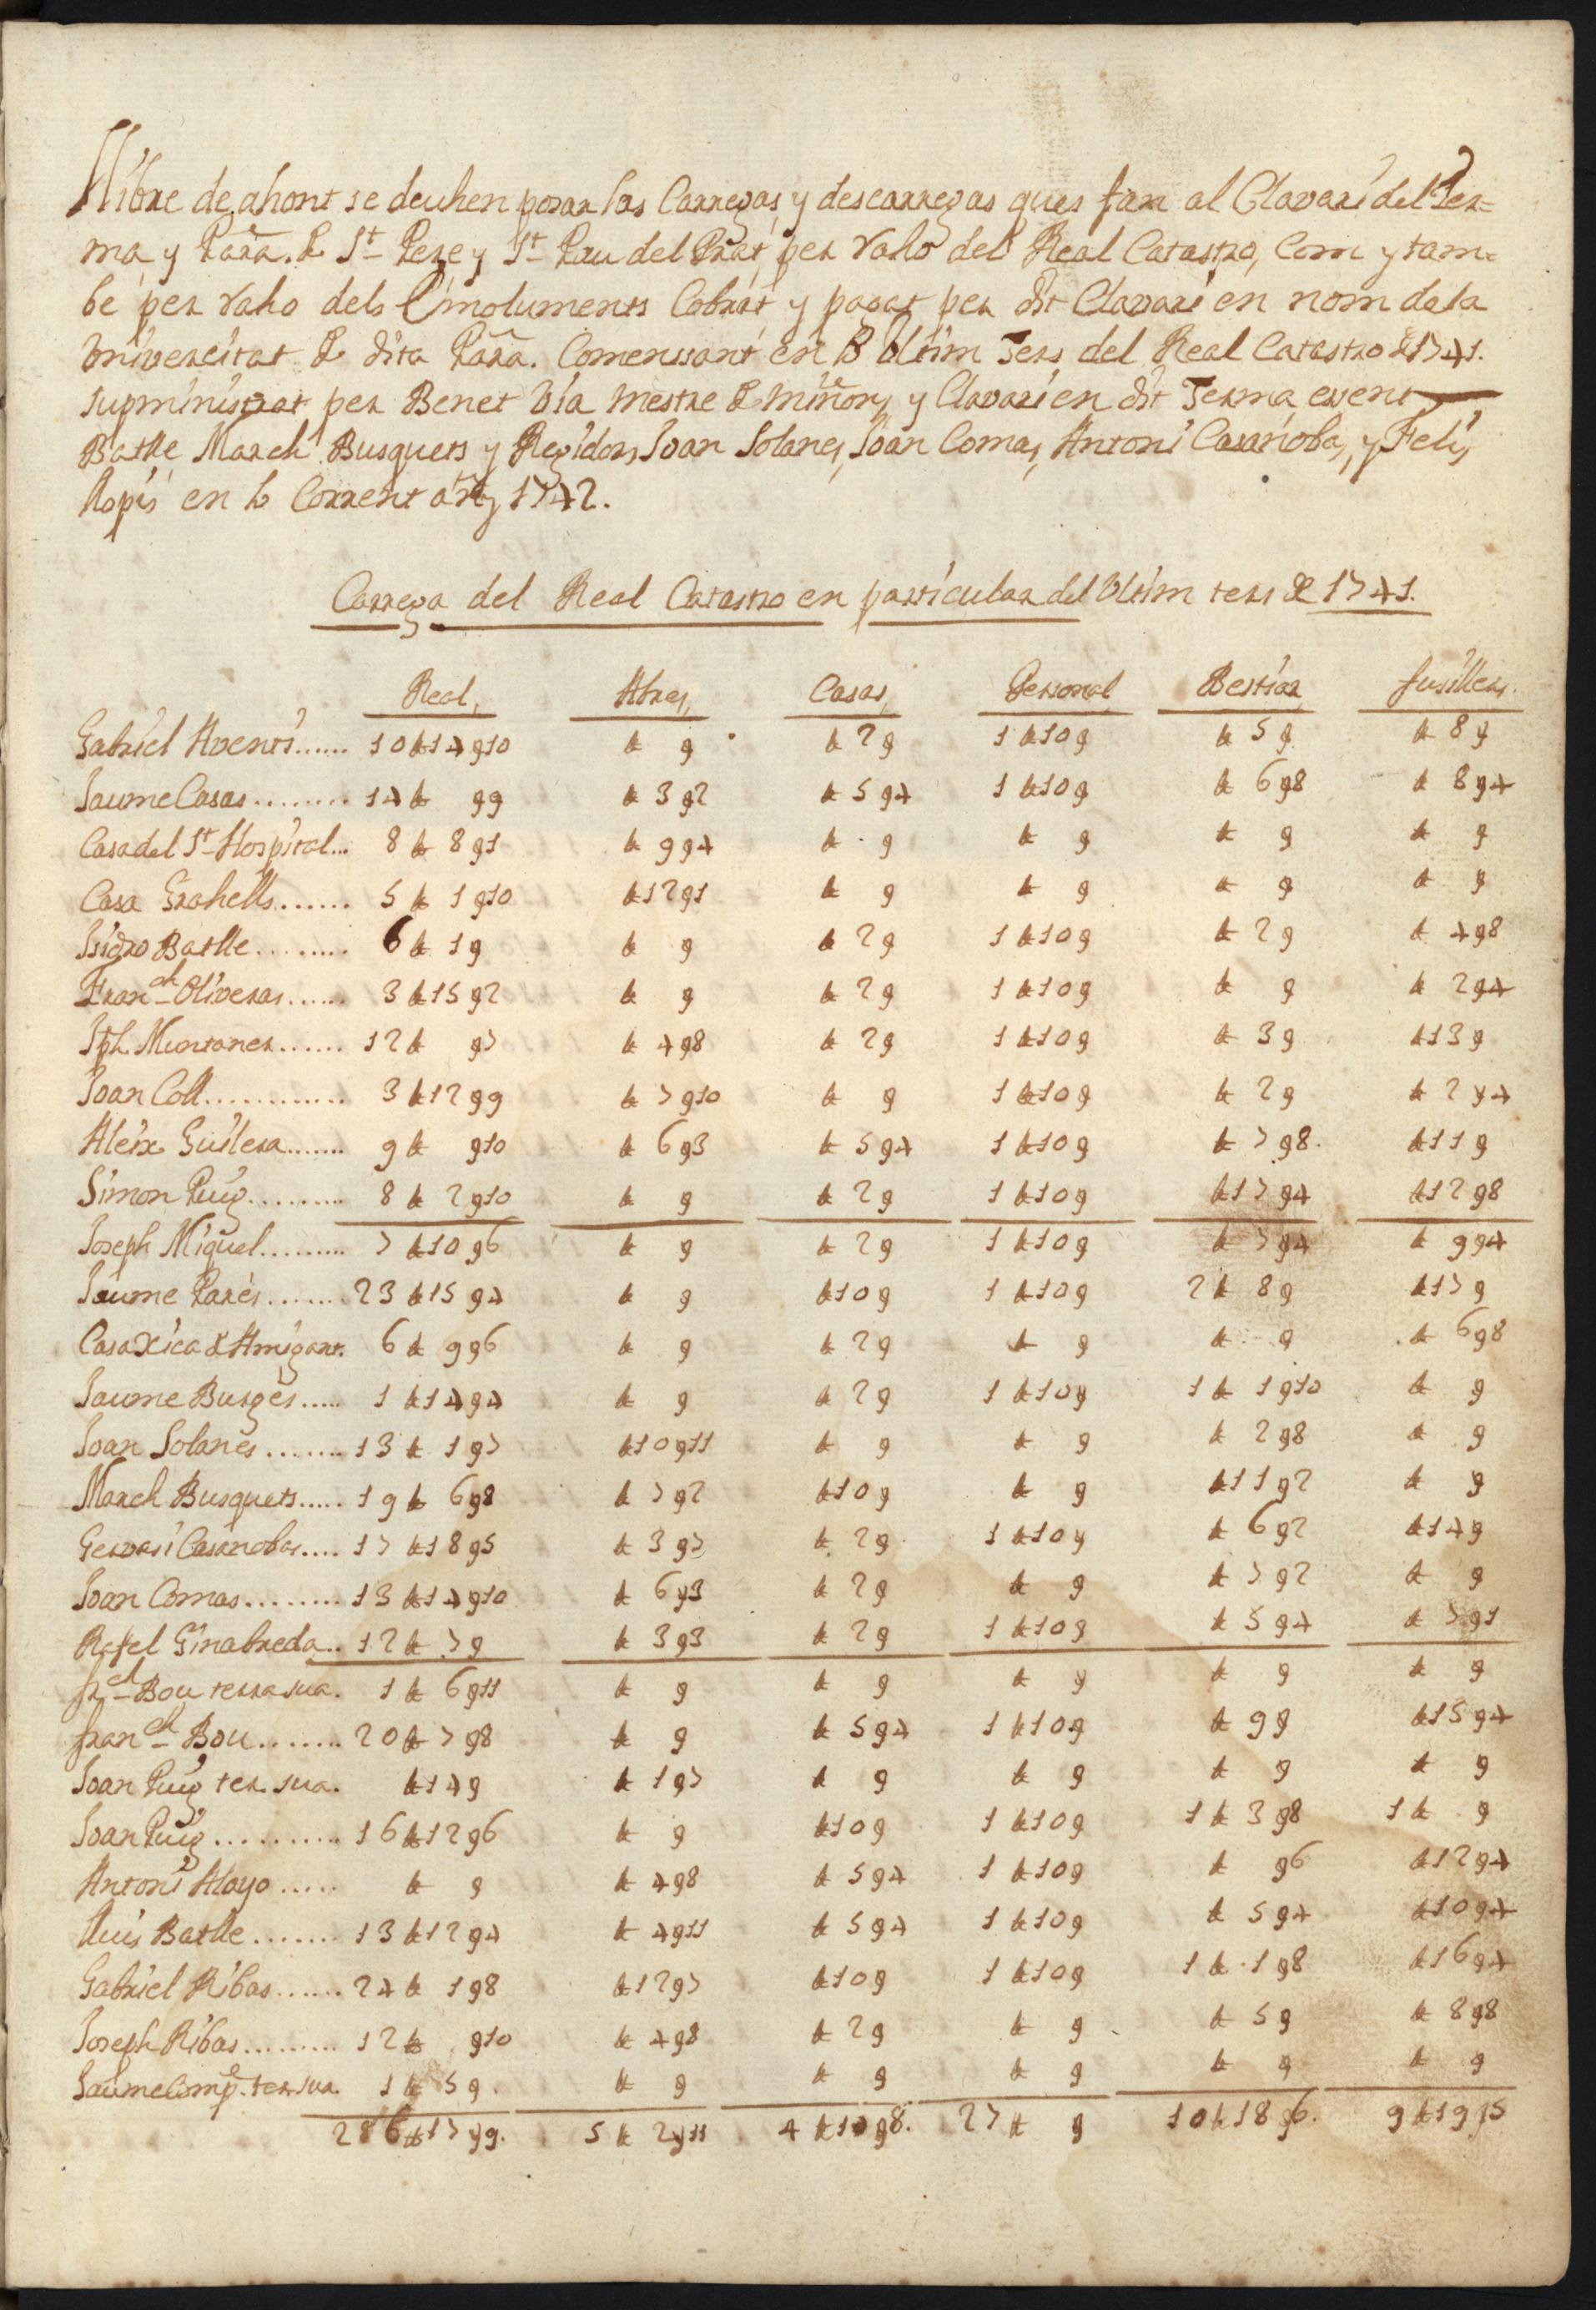 Llibre de ahont se deuhen posar las Carregas y descarregas ques fan al Clavari del Ter=
ma y Parā. de St Pere y St Pau del Prat, per raho del Real Catastro, Com y tam=
be per raho dels Emoluments Cobrat y pagat per dit Clavari en nom de la
Univercitat de dita Parā. Comenssant en lo Ultim Ters del Real Catastro de 1741.
supministrat per Benet Via Mestre de Miñons y Clavari en dit Terma, essent
Batlle March Busquets y Regidors Joan Solanes, Joan Comas, Antoni Casanobas, y Feliu
Llopis en lo Corrent añy 1742.
Carrega del Real Catastro en particular del Ultim ters de 1741.
Real, Abres, Casas, Personal Bestiar fusillers.
Gabriel Aventi...... 10 ₶ 14 ß 10 ₶ ß ₶ 2 ß 1 ₶ 10 ß ₶ 5 ß ₶ 8 ß
Jaume Casas........ 14 ₶ ß 9 ₶ 3 ß 2 ₶ 5 ß 4 1 ₶ 10 ß ₶ 6 ß 8 ₶ 8 ß 4
Casa del St Hospital... 8 ₶ 8 ß 1 ₶ 9 ß 4 ₶ ß ₶ ß ₶ ß ₶ ß
Casa Grahells...... 5 ₶ 1 ß 10 ₶ 12 ß 1 ₶ ß ₶ ß ₶ ß ₶ ß
Isidro Batlle........ 6 ₶ 1 ß ₶ ß ₶ 2 ß 1 ₶ 10 ß ₶ 2 ß ₶ 4 ß 8
Franch Oliveras...... 3 ₶ 15 ß 2 ₶ ß ₶ 2 ß 1 ₶ 10 ß ₶ ß ₶ 2 ß 4
Jph Muntaner...... 12 ₶ ß 7 ₶ 4 ß 8 ₶ 2 ß 1 ₶ 10 ß ₶ 3 ß ₶ 13 ß
Joan Coll............ 3 ₶ 12 ß 9 ₶ 7 ß 10 ₶ ß 1 ₶ 10 ß ₶ 2 ß ₶ 2 ß 4
Aleix Guilera....... 9 ₶ ß 10 ₶ 6 ß 3 ₶ 5 ß 4 1 ₶ 10 ß ₶ 7 ß 8. ₶ 11 ß
Simon Puig......... 8 ₶ 2 ß 10 ₶ ß ₶ 2 ß 1 ₶ 10 ß ₶ 17 ß 4 ₶ 12 ß 8
Joseph Miquel......... 7 ₶ 10 ß 6 ₶ ß ₶ 2 ß 1 ₶ 10 ß ₶ 7 ß 4 ₶ 9 ß 4
Jaume Pares....... 23 ₶ 15 ß 4 ₶ ß ₶ 10 ß 1 ₶ 10 ß 2 ₶ 8 ß ₶ 17 ß
Casa Xica de Amigant. 6 ₶ 9 ß 6 ₶ ß ₶ 2 ß ₶ ß ₶ ß ₶ 6 ß 8
Jaume Burges..... 1 ₶ 14 ß 4 ₶ ß ₶ 2 ß 1 ₶ 10 ß 1 ₶ 1 ß 10 ₶ ß
Joan Solanes....... 13 ₶ 1 ß 7 ₶ 10 ß 11 ₶ ß ₶ ß ₶ 2 ß 8 ₶ ß
March Busquets..... 19 ₶ 6 ß 8 ₶ 7 ß 2 ₶ 10 ß ₶ ß ₶ 11 ß 2 ₶ ß
Gervasi Casanobas.... 17 ₶ 18 ß 5 ₶ 3 ß 7 ₶ 2 ß 1 ₶ 10 ß ₶ 6 ß 2 ₶ 14 ß
Joan Comas........ 13 ₶ 14 ß 10 ₶ 6 ß 3 ₶ 2 ß ₶ ß ₶ 7 ß 2 ₶ ß
Rafel Ginabreda.. 12 ₶ 7 ß ₶ 3 ß 3 ₶ 2 ß 1 ₶ 10 ß ₶ 5 ß 4 ₶ 7 ß 1
frch Bou terra sua. 1 ₶ 6 ß 11 ₶ ß ₶ ß ₶ ß ₶ ß ₶ ß
franch Bou....... 20 ₶ 7 ß 8 ₶ ß ₶ 5 ß 4 1 ₶ 10 ß ₶ 9 ß ₶ 15 ß 4
Joan Puig ter. sua. ₶ 14 ß ₶ 1 ß 7 ₶ ß ₶ ß ₶ ß ₶ ß
Joan Puig.......... 16 ₶ 12 ß 6 ₶ ß ₶ 10 ß 1 ₶ 10 ß 1 ₶ 3 ß 8 1 ₶ ß
Antoni Aloyo..... ₶ ß ₶ 4 ß 8 ₶ 5 ß 4 1 ₶ 10 ß ₶ ß 6 ₶ 12 ß 4
Lluis Batlle....... 13 ₶ 12 ß 4 ₶ 4 ß 11 ₶ 5 ß 4 1 ₶ 10 ß ₶ 5 ß 4 ₶ 10 ß 4
Gabriel Ribas...... 24 ₶ 1 ß 8 ₶ 12 ß 7 ₶ 10 ß 1 ₶ 10 ß 1 ₶ 1 ß 8 ₶ 16 ß 4
Joseph Ribas......... 12 ₶ ß 10 ₶ 4 ß 8 ₶ 2 ß ₶ ß ₶ 5 ß ₶ 8 ß 8
Jaume Comp. ter. sua. 1 ₶ 5 ß. ₶ ß ₶ ß ₶ ß ₶ ß ₶ ß
286 ₶ 17 ß 9. 5 ₶ 2 ß 11 4 ₶ 10 ß 8. 27 ₶ ß 10 ₶ 18 ß 6. 9 ₶ 19 ß 5